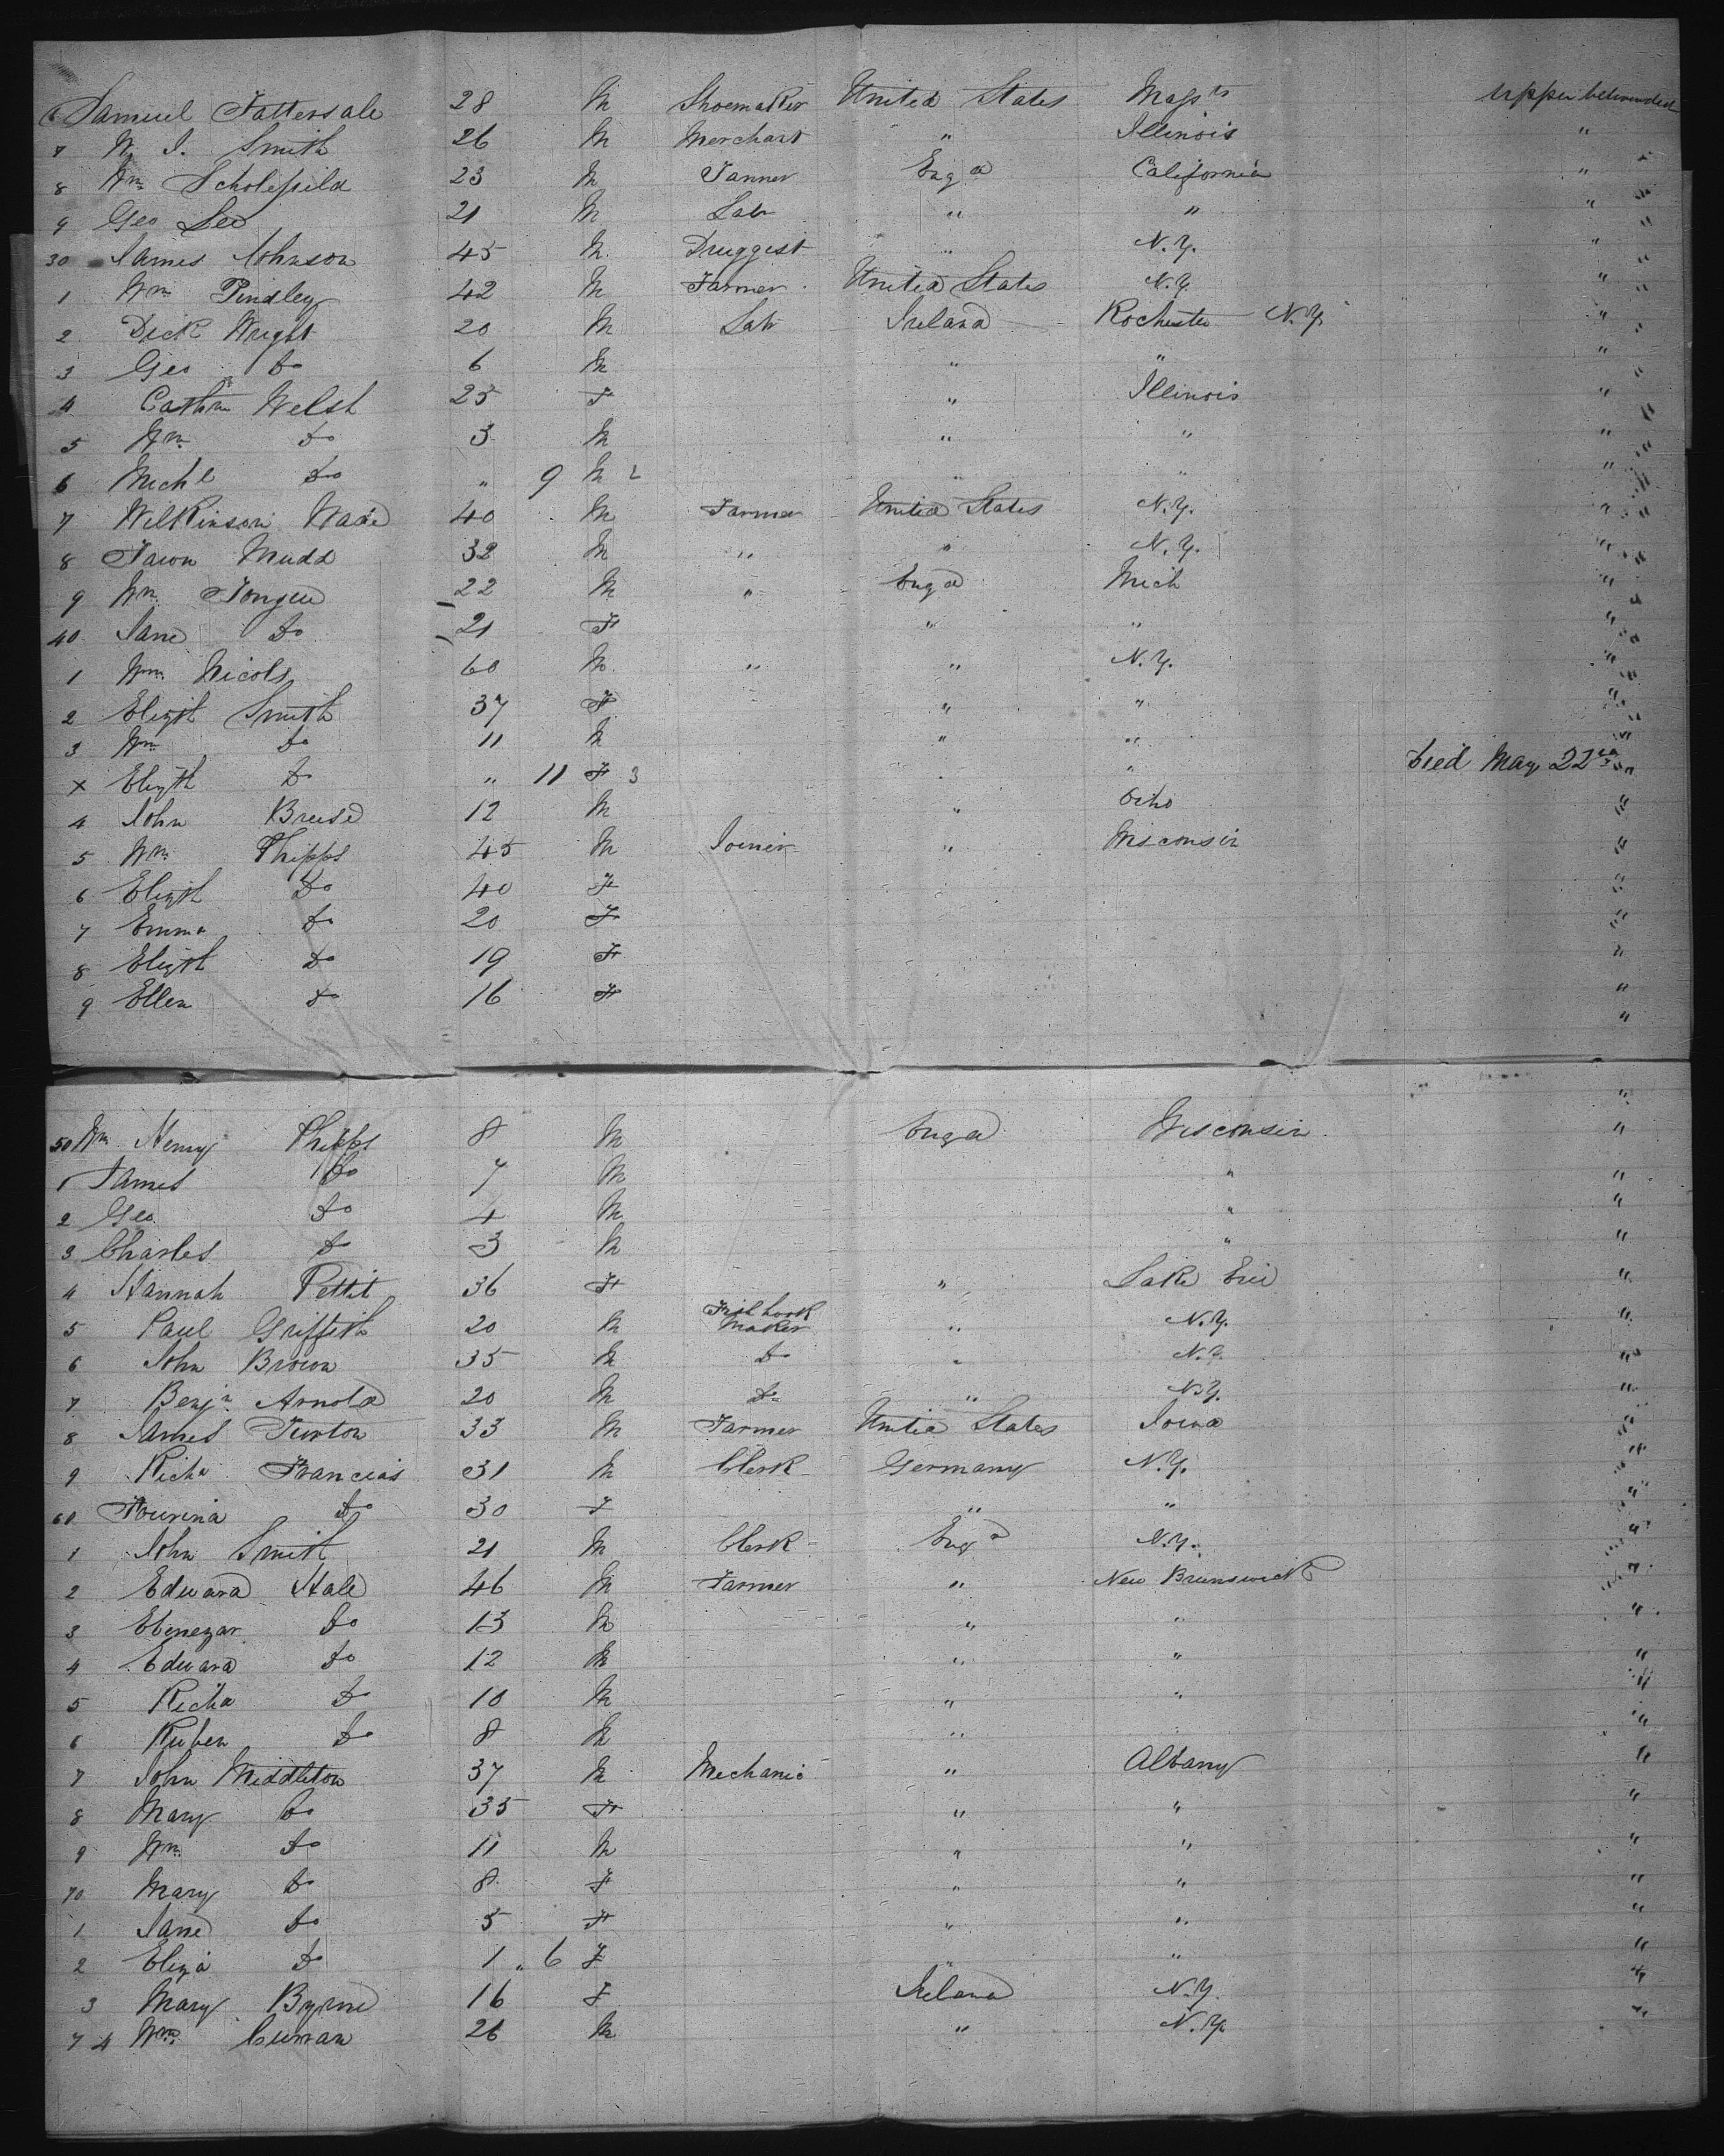 6 Samuel Tattersale 28 M Shoemaker United States Massts upper between deck
7 W. I. Smith 26 M Merchant " Illinois "
8 Wm Scholefield 23 M Tanner Engd California "
9 Geo Lee 21 M Lab " " "
30 James Johnson 45 M Druggist " N.Y. "
1 Wm Pindley 42 M Farmer United States N.Y. "
2 Dick Wright 20 M Lab Ireland Rochester N.Y. "
3 Geo Do 6 M " " "
4 Cathn Welsh 25 F " Illinois "
5 Wm Do 3 M " " "
6 Michl Do " 9 M 2 " " "
7 Wilkinson Wade 40 M Farmer United States N.Y. "
8 Mudd 32 M " " N.Y. "
9 Wm Tongue 22 M " Engd Mich "
40 Jane Do 21 F " " "
1 Wm Nicols 60 M " " N.Y. "
2 Elizth Smith 37 F " " "
3 Wm Do 11 M " " "
x Elizth Do " 11 F 3 " " Died May 22nd "
4 John Breese 12 M " Ohio "
5 Wm Phipps 45 M Joiner " Wisconsin "
6 Elizth Do 40 F "
7 Emma Do 20 F "
8 Elizth Do 19 F "
9 Ellen Do 16 F "
50 Wm Henry Phipps 8 M Engd Wisconsin "
1 James Do 7 M " "
2 Geo Do 4 M " "
3 Charles Do 3 M " "
4 Hannah Pettit 36 F " Lake Erie "
5 Paul Griffith 20 M Fish hook Maker " N.Y. "
6 John Brown 35 M Do " N.Y. "
7 Benjn Arnold 20 M Do " N.Y. "
8 James Turton 33 M Farmer United States Iowa "
9 Richd Francias 31 M Clerk Germany N.Y. "
60 Do 30 F " " "
1 John Smith 21 M Clerk Engd N.Y. "
2 Edward Hale 46 M Farmer " New Brunswick "
3 Ebenezar Do 13 M " " "
4 Edward Do 12 M " " "
5 Richd Do 10 M " " "
6 Ruben Do 8 M " "
7 John Middleton 37 M Mechanic " Albany "
8 Mary Do 35 F " " "
9 Wm Do 11 M " " "
70 Mary Do 8 F " " "
1 Jane Do 5 F " " "
2 Eliza Do 1 " 6 F " " "
3 Mary Byrne 16 F Ireland N.Y. "
74 Wm Curran 26 M " N.Y. "